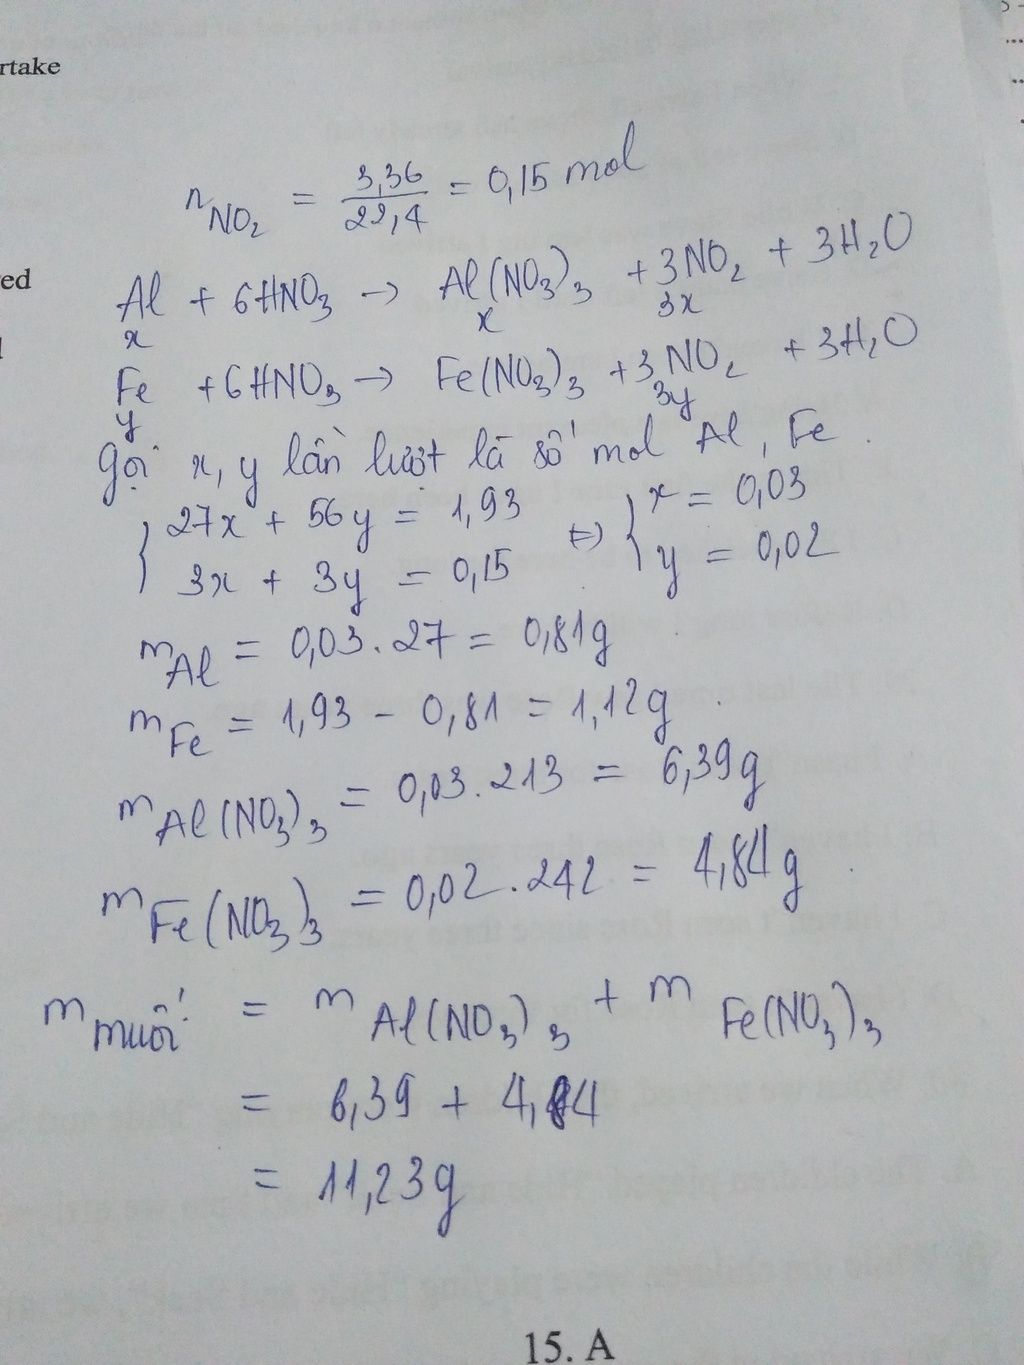 rtake
n NO₂ = 3,36/22,4 = 0,15 mol
ed
Al + 6HNO₃ → Al(NO₃)₃ + 3NO₂ + 3H₂O
x x 3x
Fe + 6HNO₃ → Fe(NO₃)₃ + 3NO₂ + 3H₂O
y 3y
Gọi x, y lần lượt là số mol Al, Fe.
{ 27x + 56y = 1,93 ⇔ { x = 0,03
3x + 3y = 0,15 y = 0,02
m Al = 0,03.27 = 0,81g
m Fe = 1,93 - 0,81 = 1,12g
m Al(NO₃)₃ = 0,03.213 = 6,39g
m Fe(NO₃)₃ = 0,02.242 = 4,84g
m muối = m Al(NO₃)₃ + m Fe(NO₃)₃
= 6,39 + 4,84
= 11,23g
15. A